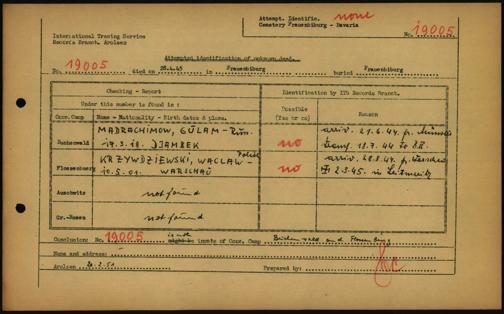 Attempt. Identific. none
Cemetery Frauenbiburg - Bavaria
No. 19005
International Tracing Service
Records Branch. Arolsen
Attempted identification of unknown dead.
No. 19005 died on 28.4.45 in Frauenbiburg buried Frauenbiburg
Checking - Report
Identification by ITS Records Branch.
Under this number is found in:
Possible
(Yes or no)
Reason
Conc. Camp Name - Nationality - Birth dates & place.
Buchenwald
MADRACHIMOW, GULAM - Russ.
17.3.18. DJAMBEK
no
arriv. 21.6.44
18.7.44
Flossenburg
KRZYWDZIEWSKI, WACLAW - Polish
10.5.01. WARSCHAU
no
arriv.
2.3.45 in Leitmeritz
Auschwitz not found
Gr.-Rosen not found
Conclusion: No. 19005 is not inmate of Conc. Camp Buchenwald and Flossenburg
Name and address:
Arolsen 20.2.51 Prepared by: